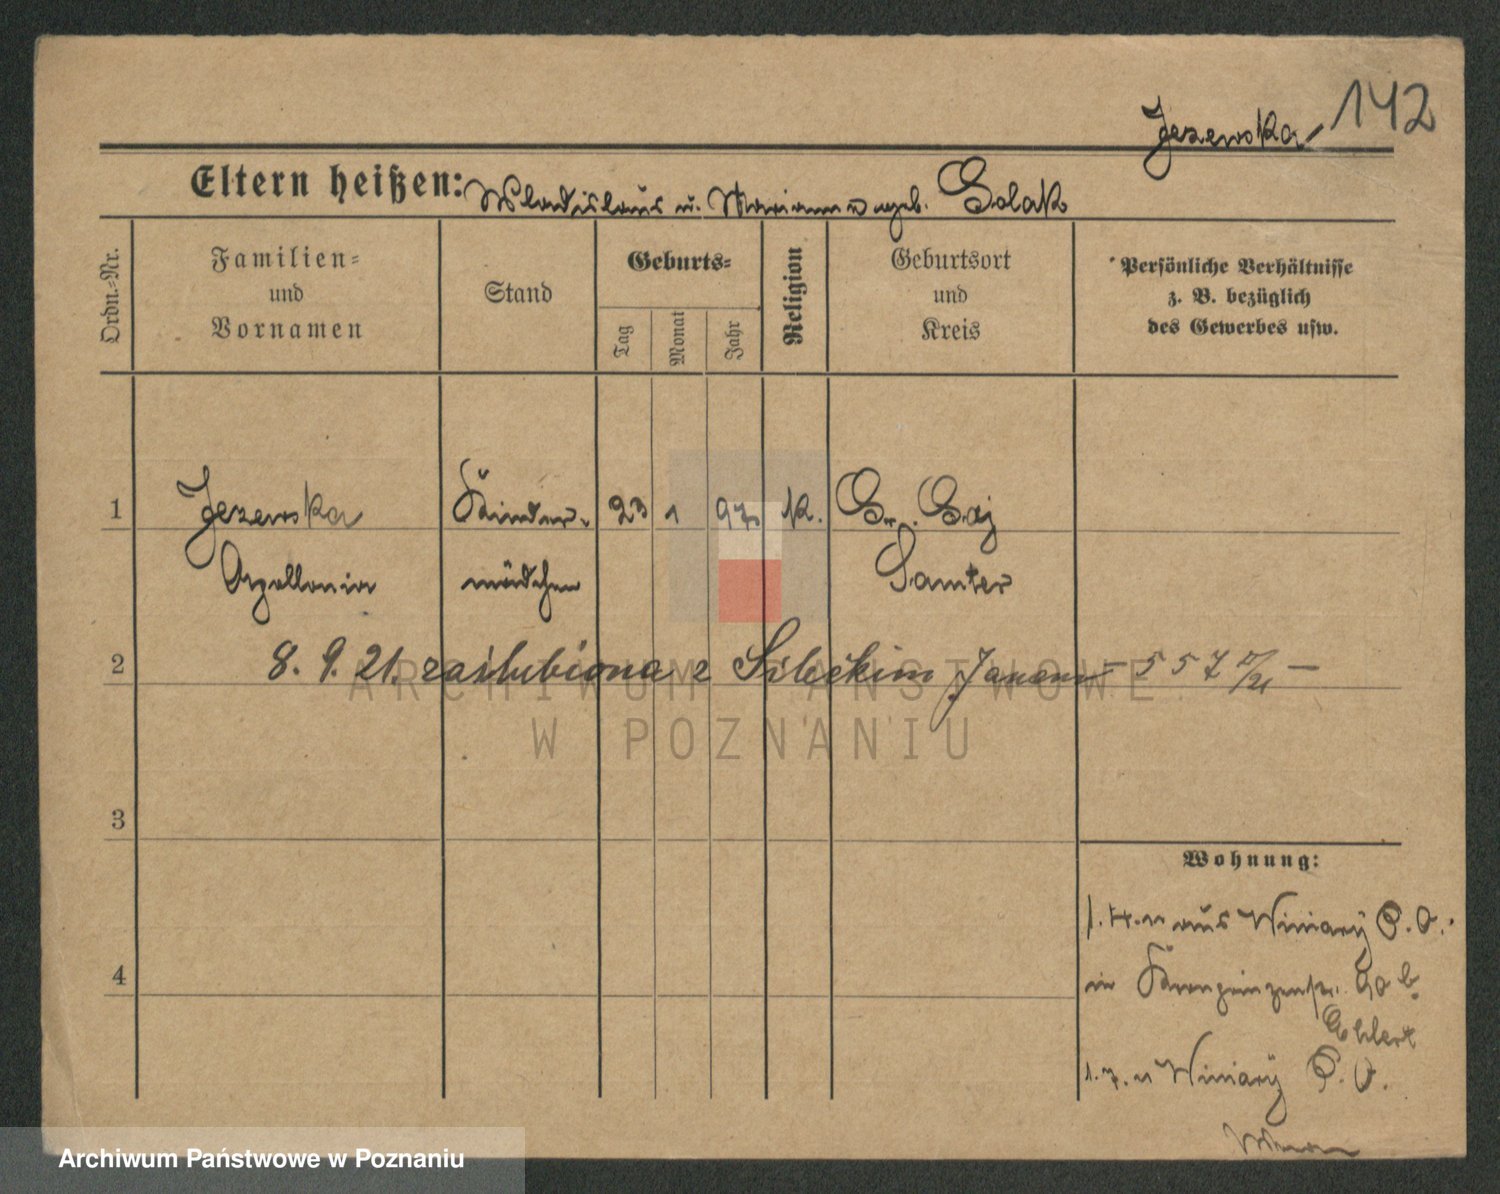 142
Jezewska
Eltern heißen: Wladislaus u. Marianna geb. Solak
Ordn.-Nr.
Familien-
und
Vornamen
Stand
Geburts-
Tag
Monat
Jahr
Religion
Geburtsort
und
Kreis
Persönliche Verhältnisse
z. B. bezüglich
des Gewerbes usw.
1 Jezewska Kinder- 23 1 97 k. Gr. Gaj
Apollonia mädchen Samter
2 8. 9. 21. zaślubiona z Janem – 557/21 –
3
Wohnung:
1. 4. 11 aus Winiary P. O.
4
in Kronprinzenstr. 90 b.
Ehlert
1. 7. 11 Winiary P. O.
ARCHIWUM PAŃSTWOWE
W POZNANIU
Archiwum Państwowe w Poznaniu